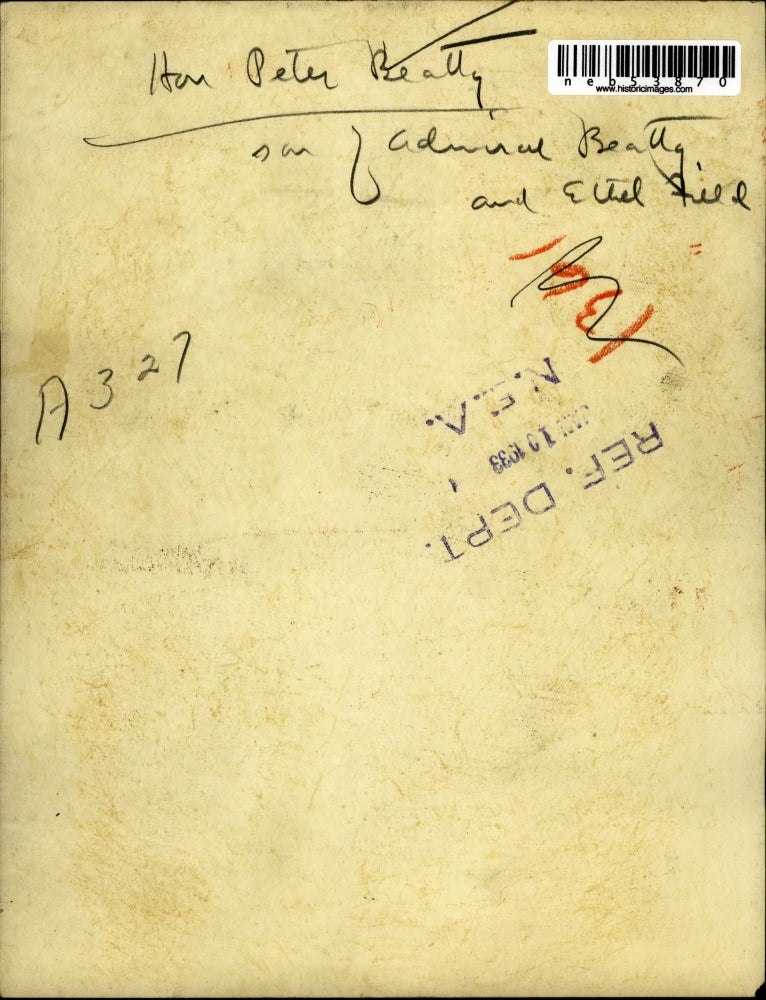 Hon Peter Beatty
neb53870
www.historicimages.com
son of Admiral Beatty
and Ethel Field
A327
N.E.A.
JAN 10 1933
REF. DEPT.